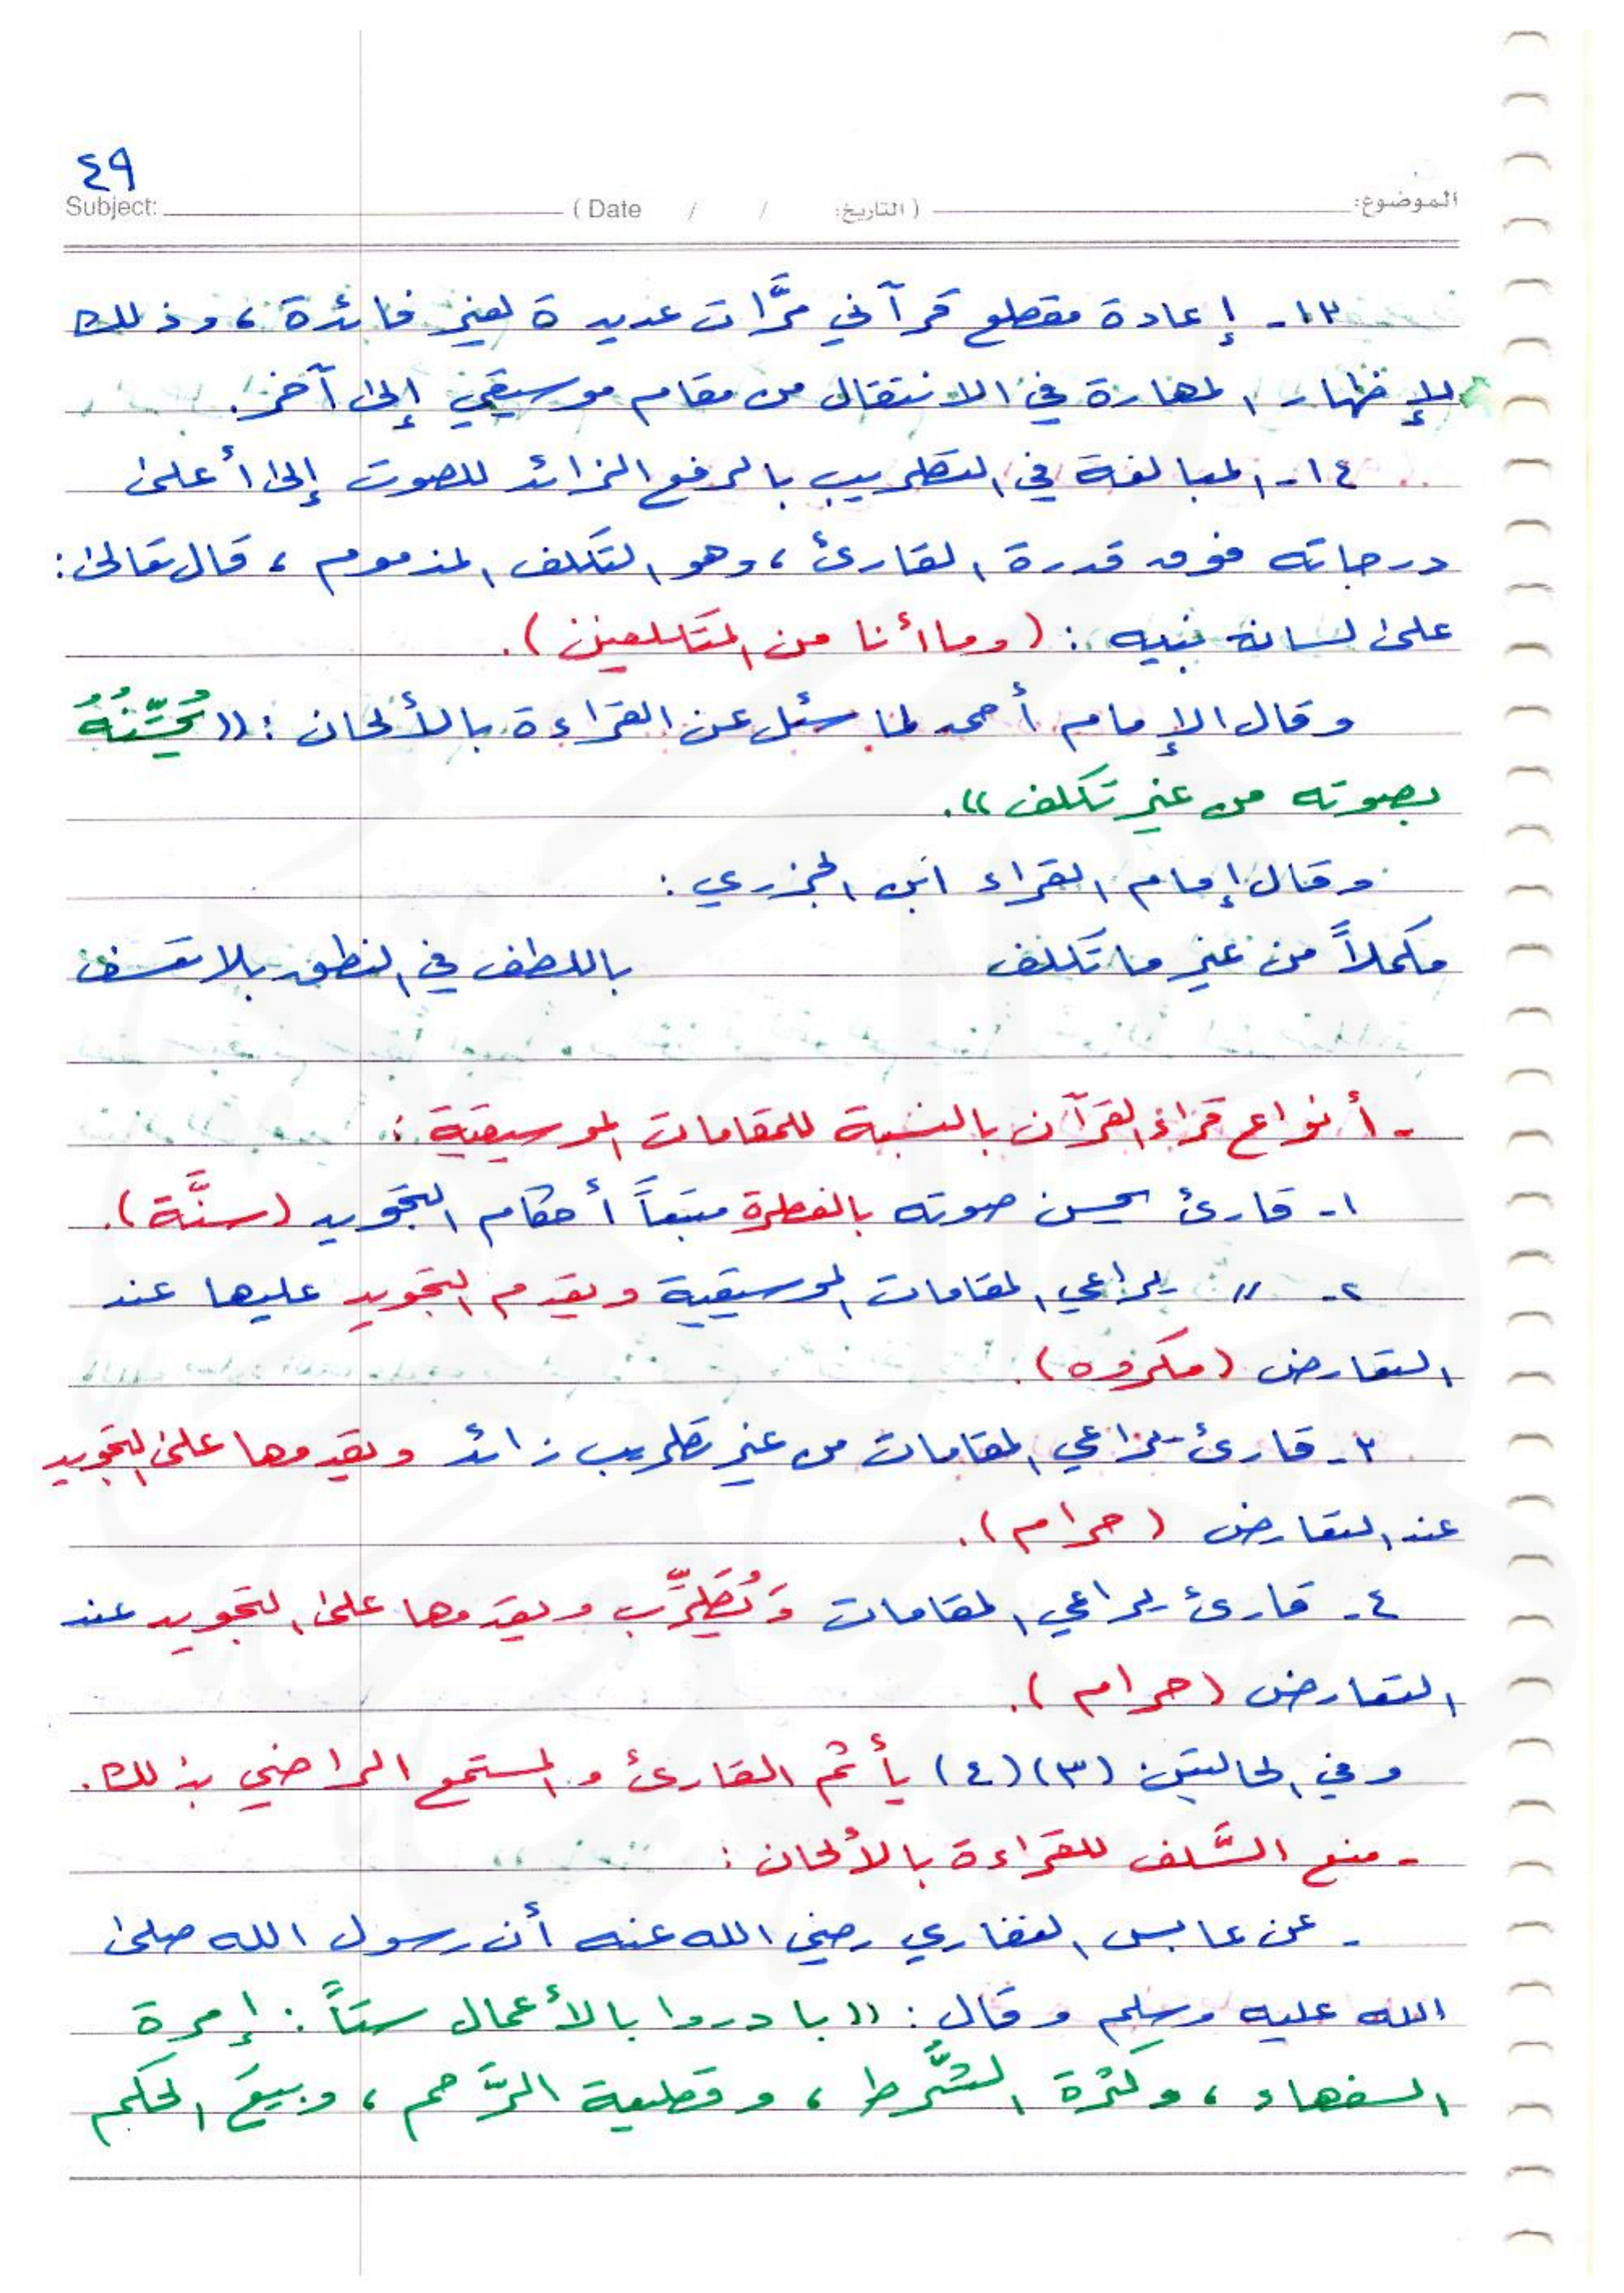 ٤٩
Subject: ( Date / / التاريخ: ) الموضوع:
١٣- إعادة مقطع قرآني مرَّات عديدة لغير فائدة ، وذلك
لإظهار المهارة في الانتقال من مقام موسيقي إلى آخر.
١٤- المبالغة في التطريب بالرفع الزائد للصوت إلى أعلى
درجاته فوق قدرة القارئ ، وهو التكلف المذموم ، قال تعالى:
على لسان نبيه : (وما أنا من المتكلفين).
وقال الإمام أحمد لما سئل عن القراءة بالألحان : ((يُحَسِّنُهُ
بصوته من غير تكلف)).
وقال إمام القراء ابن الجزري :
مكملاً من غير ما تكلف باللطف في النطق بلا تعسف
- أنواع قراء القرآن بالنسبة للمقامات الموسيقية :
١- قارئ يحسن صوته بالفطرة متبعاً أحكام التجويد (سنَّة).
٢- // يراعي المقامات الموسيقية ويقدم التجويد عليها عند
التعارض (مكروه).
٣- قارئ يراعي المقامات من غير تطريب زائد ويقدمها على التجويد
عند التعارض (حرام).
٤- قارئ يراعي المقامات وَيُطَرِّب ويقدمها على التجويد عند
التعارض (حرام).
وفي الحالتين (٣)(٤) يأثم القارئ والمستمع الراضي بذلك.
- منع السَّلف للقراءة بالألحان :
- عن عابس الغفاري رضي الله عنه أن رسول الله صلى
الله عليه وسلم وقال : ((بادروا بالأعمال ستاً : إمرة
السفهاء ، وكثرة الشُّرط ، وقطيعة الرَّحم ، وبيعَ الحكم